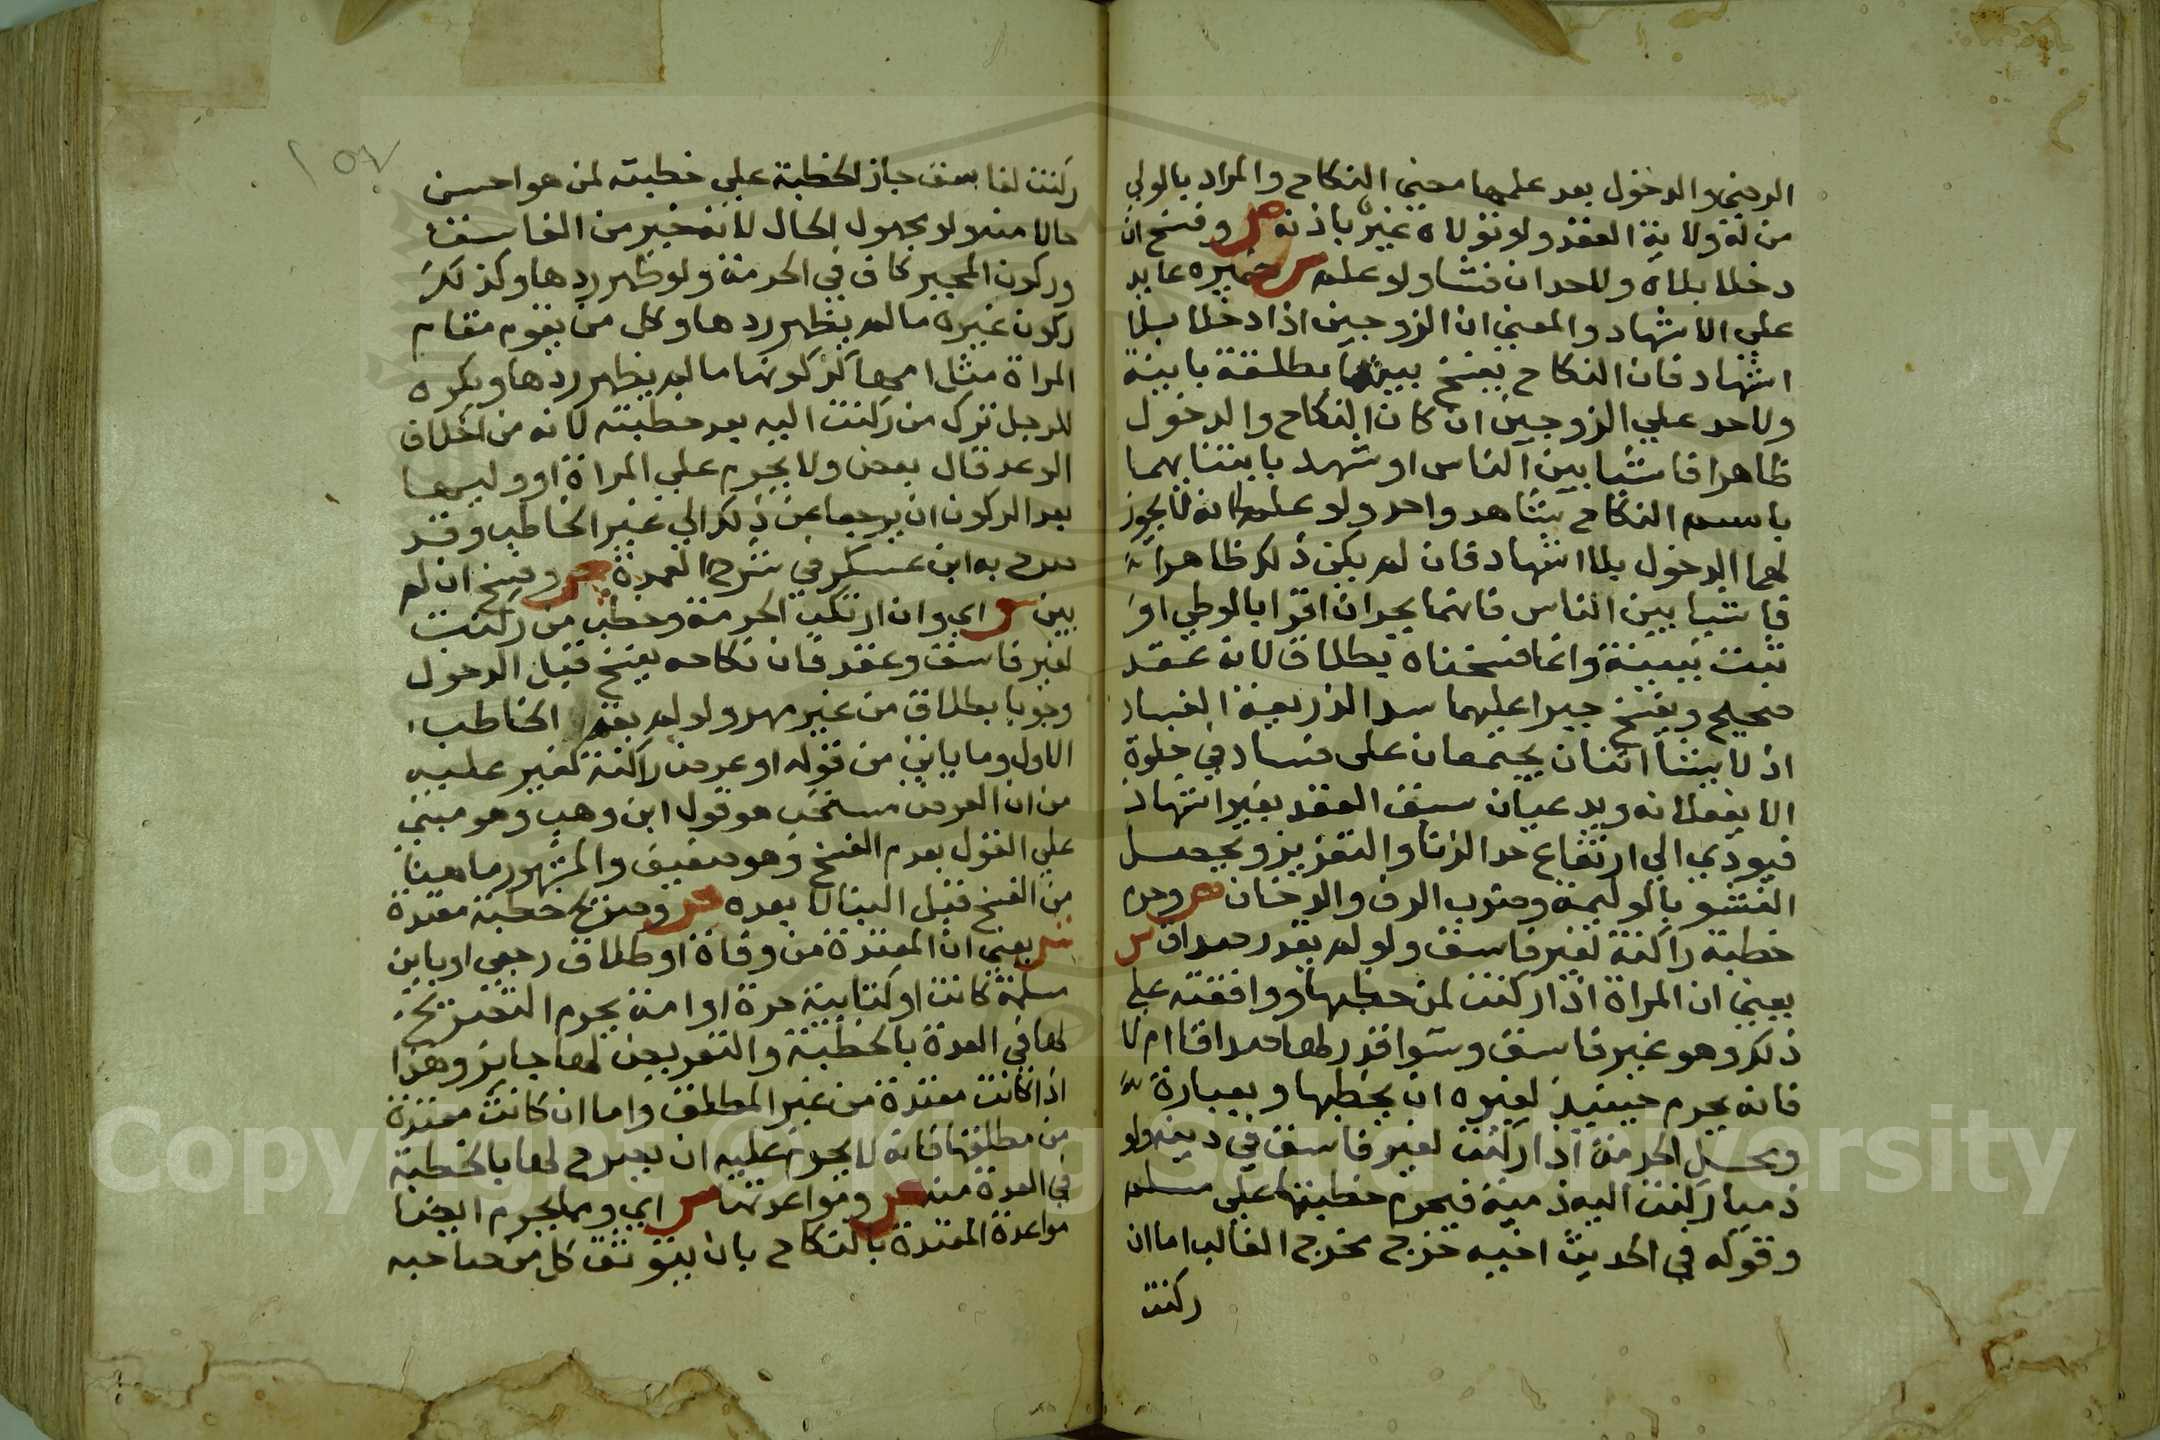 الرضي والدخول بعد علمهما معني النكاح والمراد بالولي
من له ولاية العقد ولو تولاه غيره باذنه ص وفسخ ان
دخلا بلاه ولاحد ان فشا ولو علم ش ضميره عايد
علي الاشهاد والمعني ان الزوجين اذا دخلا بلا
اشهاد فان النكاح يفسخ بينهما بطلقة باينة
ولاحد علي الزوجين ان كان النكاح والدخول
ظاهرا فاشيا بين الناس او شهد بابتنايهما
باسم النكاح شاهد واحد ولو علما انه لا يجوز
لهما الدخول بلا اشهاد فان لم يكن ذلك ظاهرا
فاشيا بين الناس فانهما يحدان اقرا بالوطي او
ثبت ببينة وانما فسخناه بطلاق لانه عقد
صحيح ويفسخ جبرا عليهما سد الذريعة الفساد
اذ لا يشا اثنان يجتمعان على فساد في خلوة
الا يفعلانه ويدعيان سبق العقد بغير اشهاد
فيودي الي ارتفاع حد الزنا والتعزير ويحصل
الفشو بالوليمة وضرب الدف والدخان ص وحرم
خطبة راكنة لغير فاسق ولو لم يقدر صداق ش
يعني ان المراة اذا ركنت لمن خطبها ووافقته علي
ذلك وهو غير فاسق وسوا قدر لها صداقا ام لا
فانه يحرم حينيذ لغيره ان يخطبها وبعبارة
ومحل الحرمة اذا ركنت لغير فاسق في دينه ولو
ذميا ركنت اليه ذمية فيحرم خطبتها على مسلم
وقوله في الحديث اخيه خرج مخرج الغالب اما ان
ركنت
١٥٧
ركنت لفاسق جاز الخطبة علي خطبته لمن هو احسن
حالا منه ولو مجهول الحال لانه خير من الفاسق
وركون المجبر كاف في الحرمة ولو ظهر ردها وكذلك
ركون غيره ما لم يظهر ردها وكل من يقوم مقام
المراة مثل امها كركونها ما لم يظهر ردها ويكره
للرجل ترك من ركنت اليه بعد خطبته لانه من اخلاف
الوعد قال بعض ولا يحرم علي المراة او وليها
بعد الركون ان يرجعا عن ذلك الي غير الخاطب وقد
صرح به ابن عسكر في شرح العمدة ص وفسخ ان لم
يبن ش اي وان ارتكب الحرمة وخطب من ركنت
لغير فاسق وعقد فان نكاحه يفسخ قبل الدخول
وجوبا بطلاق من غير مهر ولو لم يقم الخاطب
الاول وما ياتي من قوله او عرض راكنة لغير عليه
من ان العرض مستحب هو قول ابن وهب وهو مبني
علي القول بعدم الفسخ وهو ضعيف والمشهور ما هنا
من الفسخ قبل البنا لا بعده ص وصريح خطبة معتدة
ش يعني ان المعتدة من وفاة او طلاق رجعي او باين
مسلمة كانت او كتابية حرة او امة يحرم التصريح
لها في العدة بالخطبة والتعريض لها جايز وهذا
اذا كانت معتدة من غير المطلق واما ان كانت معتدة
من مطلقها فانه لا يحرم عليه ان يصرح لها بالخطبة
في العدة منه ص ومواعدتها ش اي ومما يحرم ايضا
مواعدة المعتدة بالنكاح بان يتوثق كل من صاحبه
Copyright © King Saud University